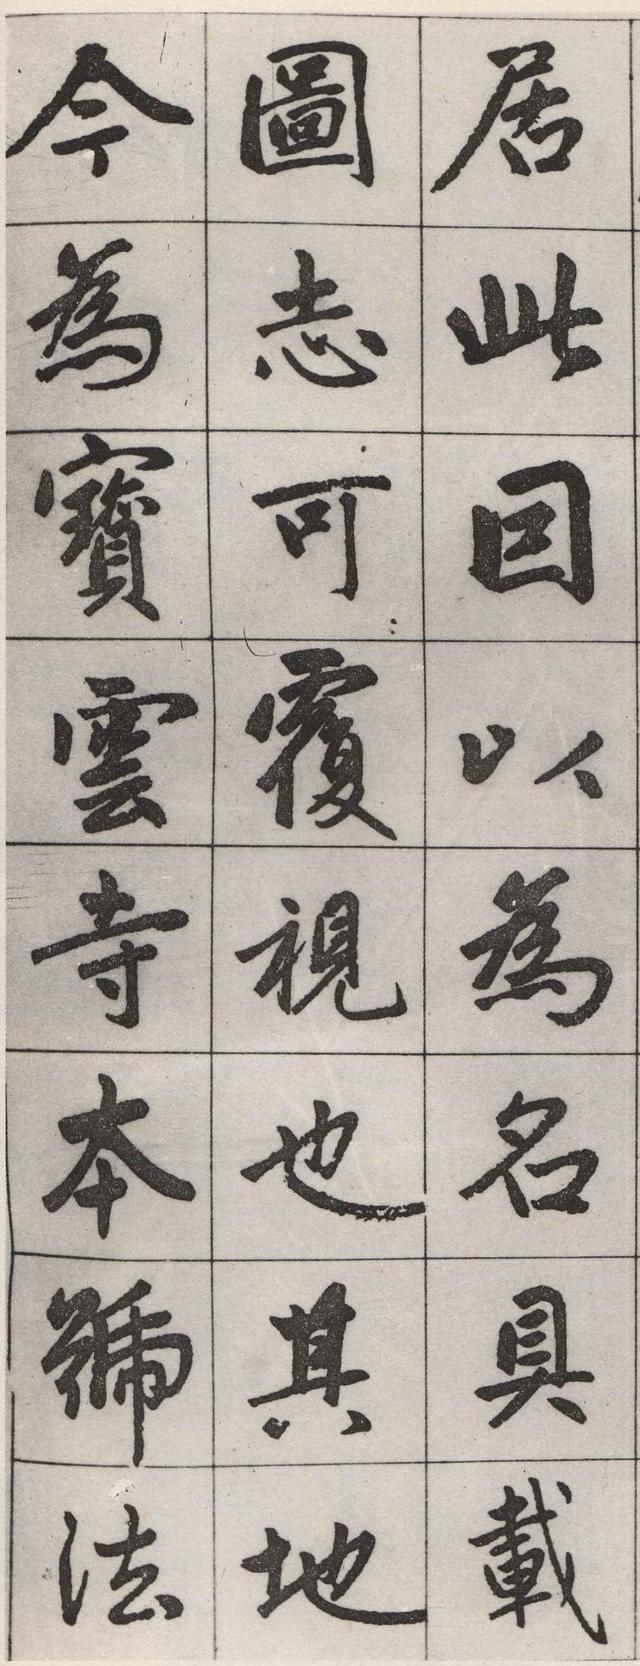 居此因以為名具載
圖志可覆視也其地
今為寶雲寺本號法